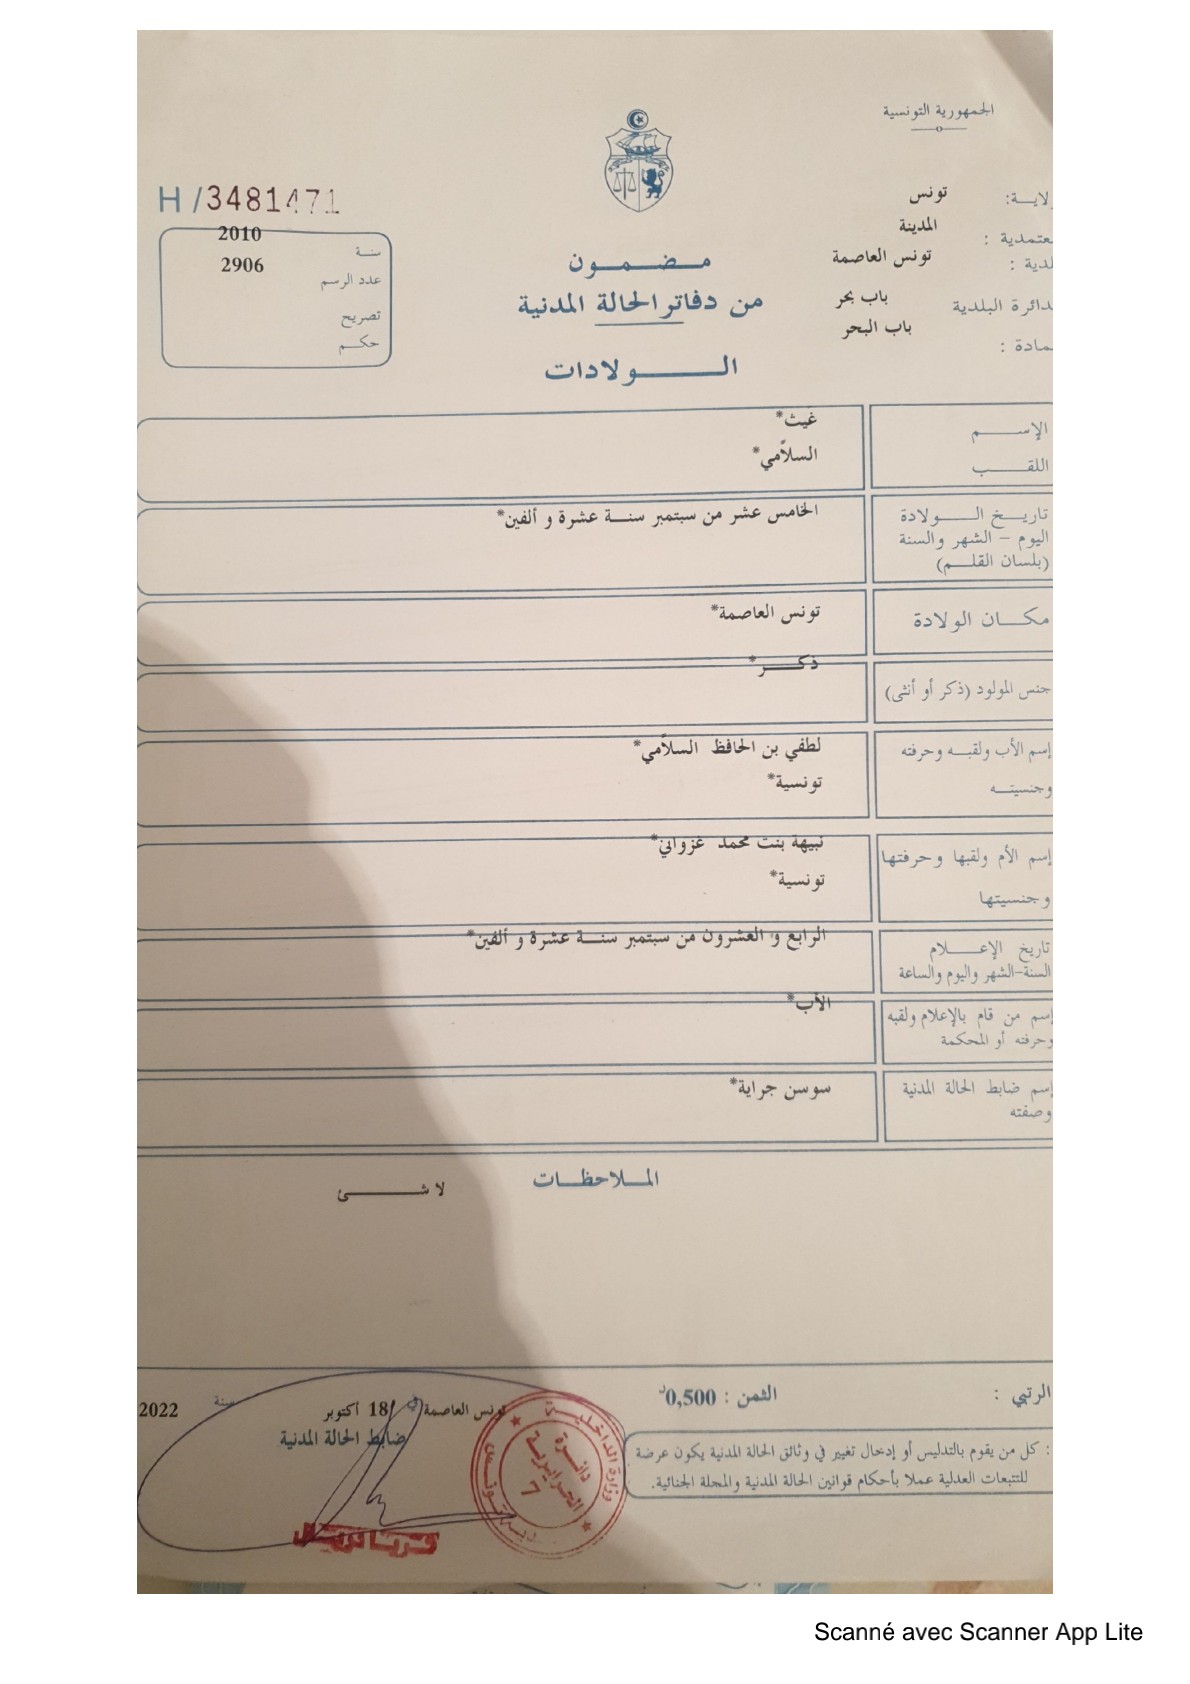 الجمهورية التونسية
H /3481471
ولاية: تونس
معتمدية : المدينة
بلدية : تونس العاصمة
الدائرة البلدية باب بحر
عمادة : باب البحر
سنة 2010
عدد الرسم 2906
تصريح
حكم
مضمون
من دفاتر الحالة المدنية
الولادات
الإسم غيث*
اللقب السلاّمي*
تاريخ الولادة الخامس عشر من سبتمبر سنة عشرة و ألفين*
اليوم - الشهر والسنة
(بلسان القلم)
مكان الولادة تونس العاصمة*
جنس المولود (ذكر أو أنثى) ذكر*
إسم الأب ولقبه وحرفته لطفي بن الحافظ السلاّمي*
وجنسيته تونسية*
إسم الأم ولقبها وحرفتها نبيهة بنت محمد غزواني*
وجنسيتها تونسية*
تاريخ الإعلام الرابع و العشرون من سبتمبر سنة عشرة و ألفين*
السنة-الشهر واليوم والساعة
إسم من قام بالإعلام ولقبه الأب*
وحرفته أو المحكمة
إسم ضابط الحالة المدنية سوسن جراية*
وصفته
الملاحظات
لا شئ
الرتبي :
الثمن : 0,500د
تونس العاصمة في 18 أكتوبر سنة 2022
ضابط الحالة المدنية
: كل من يقوم بالتدليس أو إدخال تغيير في وثائق الحالة المدنية يكون عرضة
للتتبعات العدلية عملا بأحكام قوانين الحالة المدنية والمجلة الجنائية.
وزارة الداخلية
دائرة
الجزيرة
7
Scanné avec Scanner App Lite